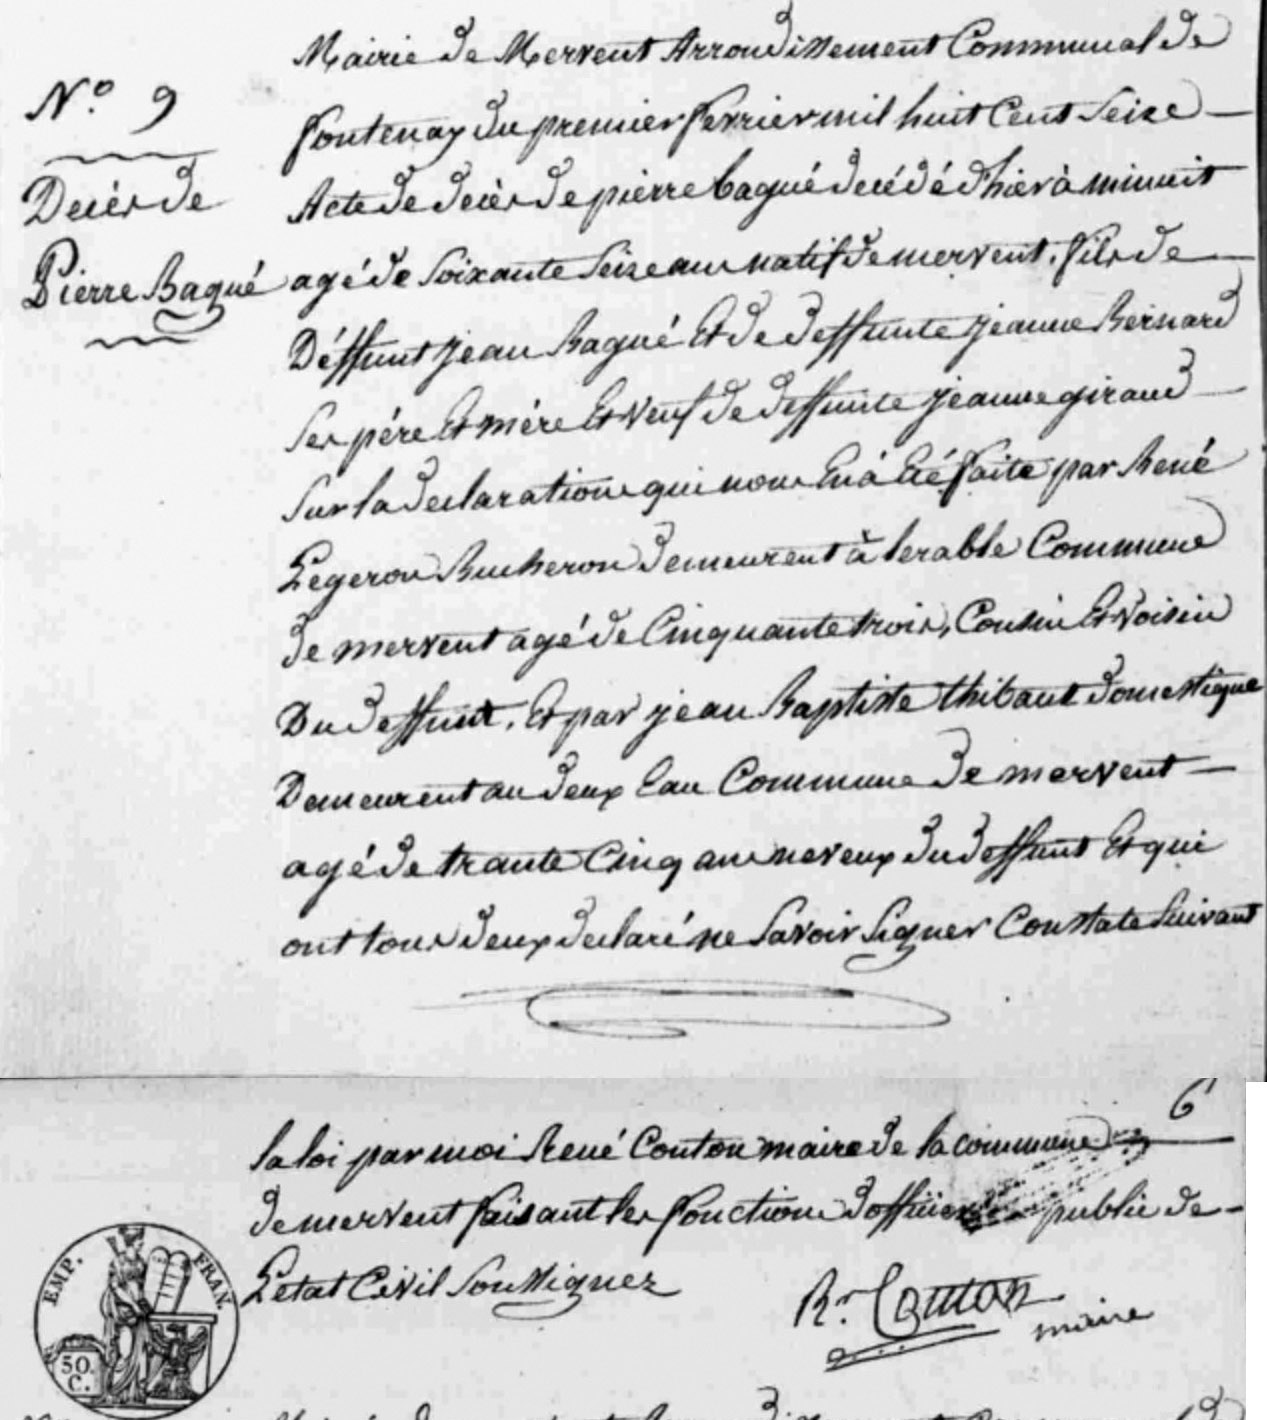 Mairie de Mervent Arrondissement Communal de
N.o 9
fontenay du premier fevrier mil huit Cent Seize
Acte de decès de pierre bagué decédé d'hièr à minuit
Decès de
Pierre Bagué
agé de Soixante Seize ans natif de mervent, fils de
Déffunt jean Bagué Et de deffunte jeanne Bernard
Ses pére Et mére Et Veuf de deffunte jeanne giraud
Sur la declaration qui nous En à Eté faite par René
Légeron Bucheron demeurent à lerable Commune
de mervent agé de Cinquante trois, Cousin Et Voisin
Du deffunt, Et par jean Baptiste thibaut domestique
Demeurent au deux Eau Commune de mervent
agé de trante Cinq ans neveux du deffunt Et qui
ont tous deux declaré ne Savoir Signer Constate Suivant
6
la loi par moi René Couton maire de la commune
de mervent faisant les fonction d'officier public de
L'etat Civil Soussignez
R. Couton
maire
EMP. FRAN.
50.
C.